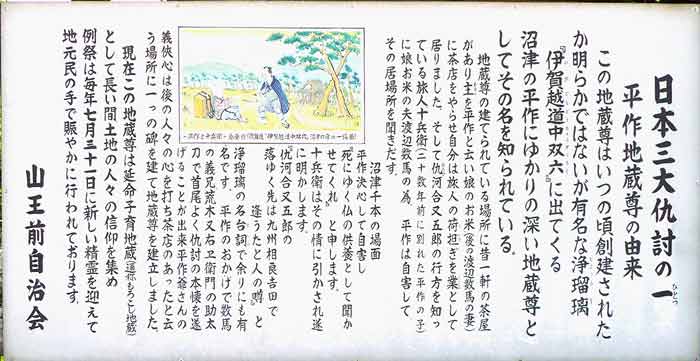 日本三大仇討の一
ひとつ
平作地蔵尊の由来
この地蔵尊はいつの頃創建された
か明らかではないが有名な浄瑠璃
『伊賀越道中双六』に出てくる
沼津の平作にゆかりの深い地蔵尊と
してその名を知られている。
地蔵尊の建てられている場所に昔一軒の茶屋
があり主を平作と云い娘のお米(後の渡辺数馬の妻)
に茶店をやらせ自分は旅人の荷担ぎを業として
居りました。そして仇河合又五郎の行方を知っ
ている旅人十兵衛(二十数年前に別れた平作の子)
に娘お米の夫渡辺数馬の為、平作は自害して
その居場所を聞きだす。
沼津千本の場面
平作決心して自害し
"死にゆく仏の供養として聞か
せてくれ〟と申します。
十兵衛はその情に引かされ遂
に明かします。
〝仇河合又五郎の
落ゆく先は九州相良吉田で
逢うたと人の噂〟と
浄瑠璃の名台詞で余りにも有
名です。平作のおかげで数馬
の義兄荒木又右ヱ衛門の助太
刀で首尾よく仇討の本懐を遂
げることが出来平作爺さんの
義侠心は後の人々の心を打ち茶店のあったと云
う場所に一つの碑を建て地蔵尊を建立しました。
現在この地蔵尊は延命子育地蔵(通称もろこし地蔵)
として長い間土地の人々の信仰を集め
例祭は毎年七月三十一日に新しい精霊を迎えて
地元民の手で賑やかに行われております。
山王前自治会